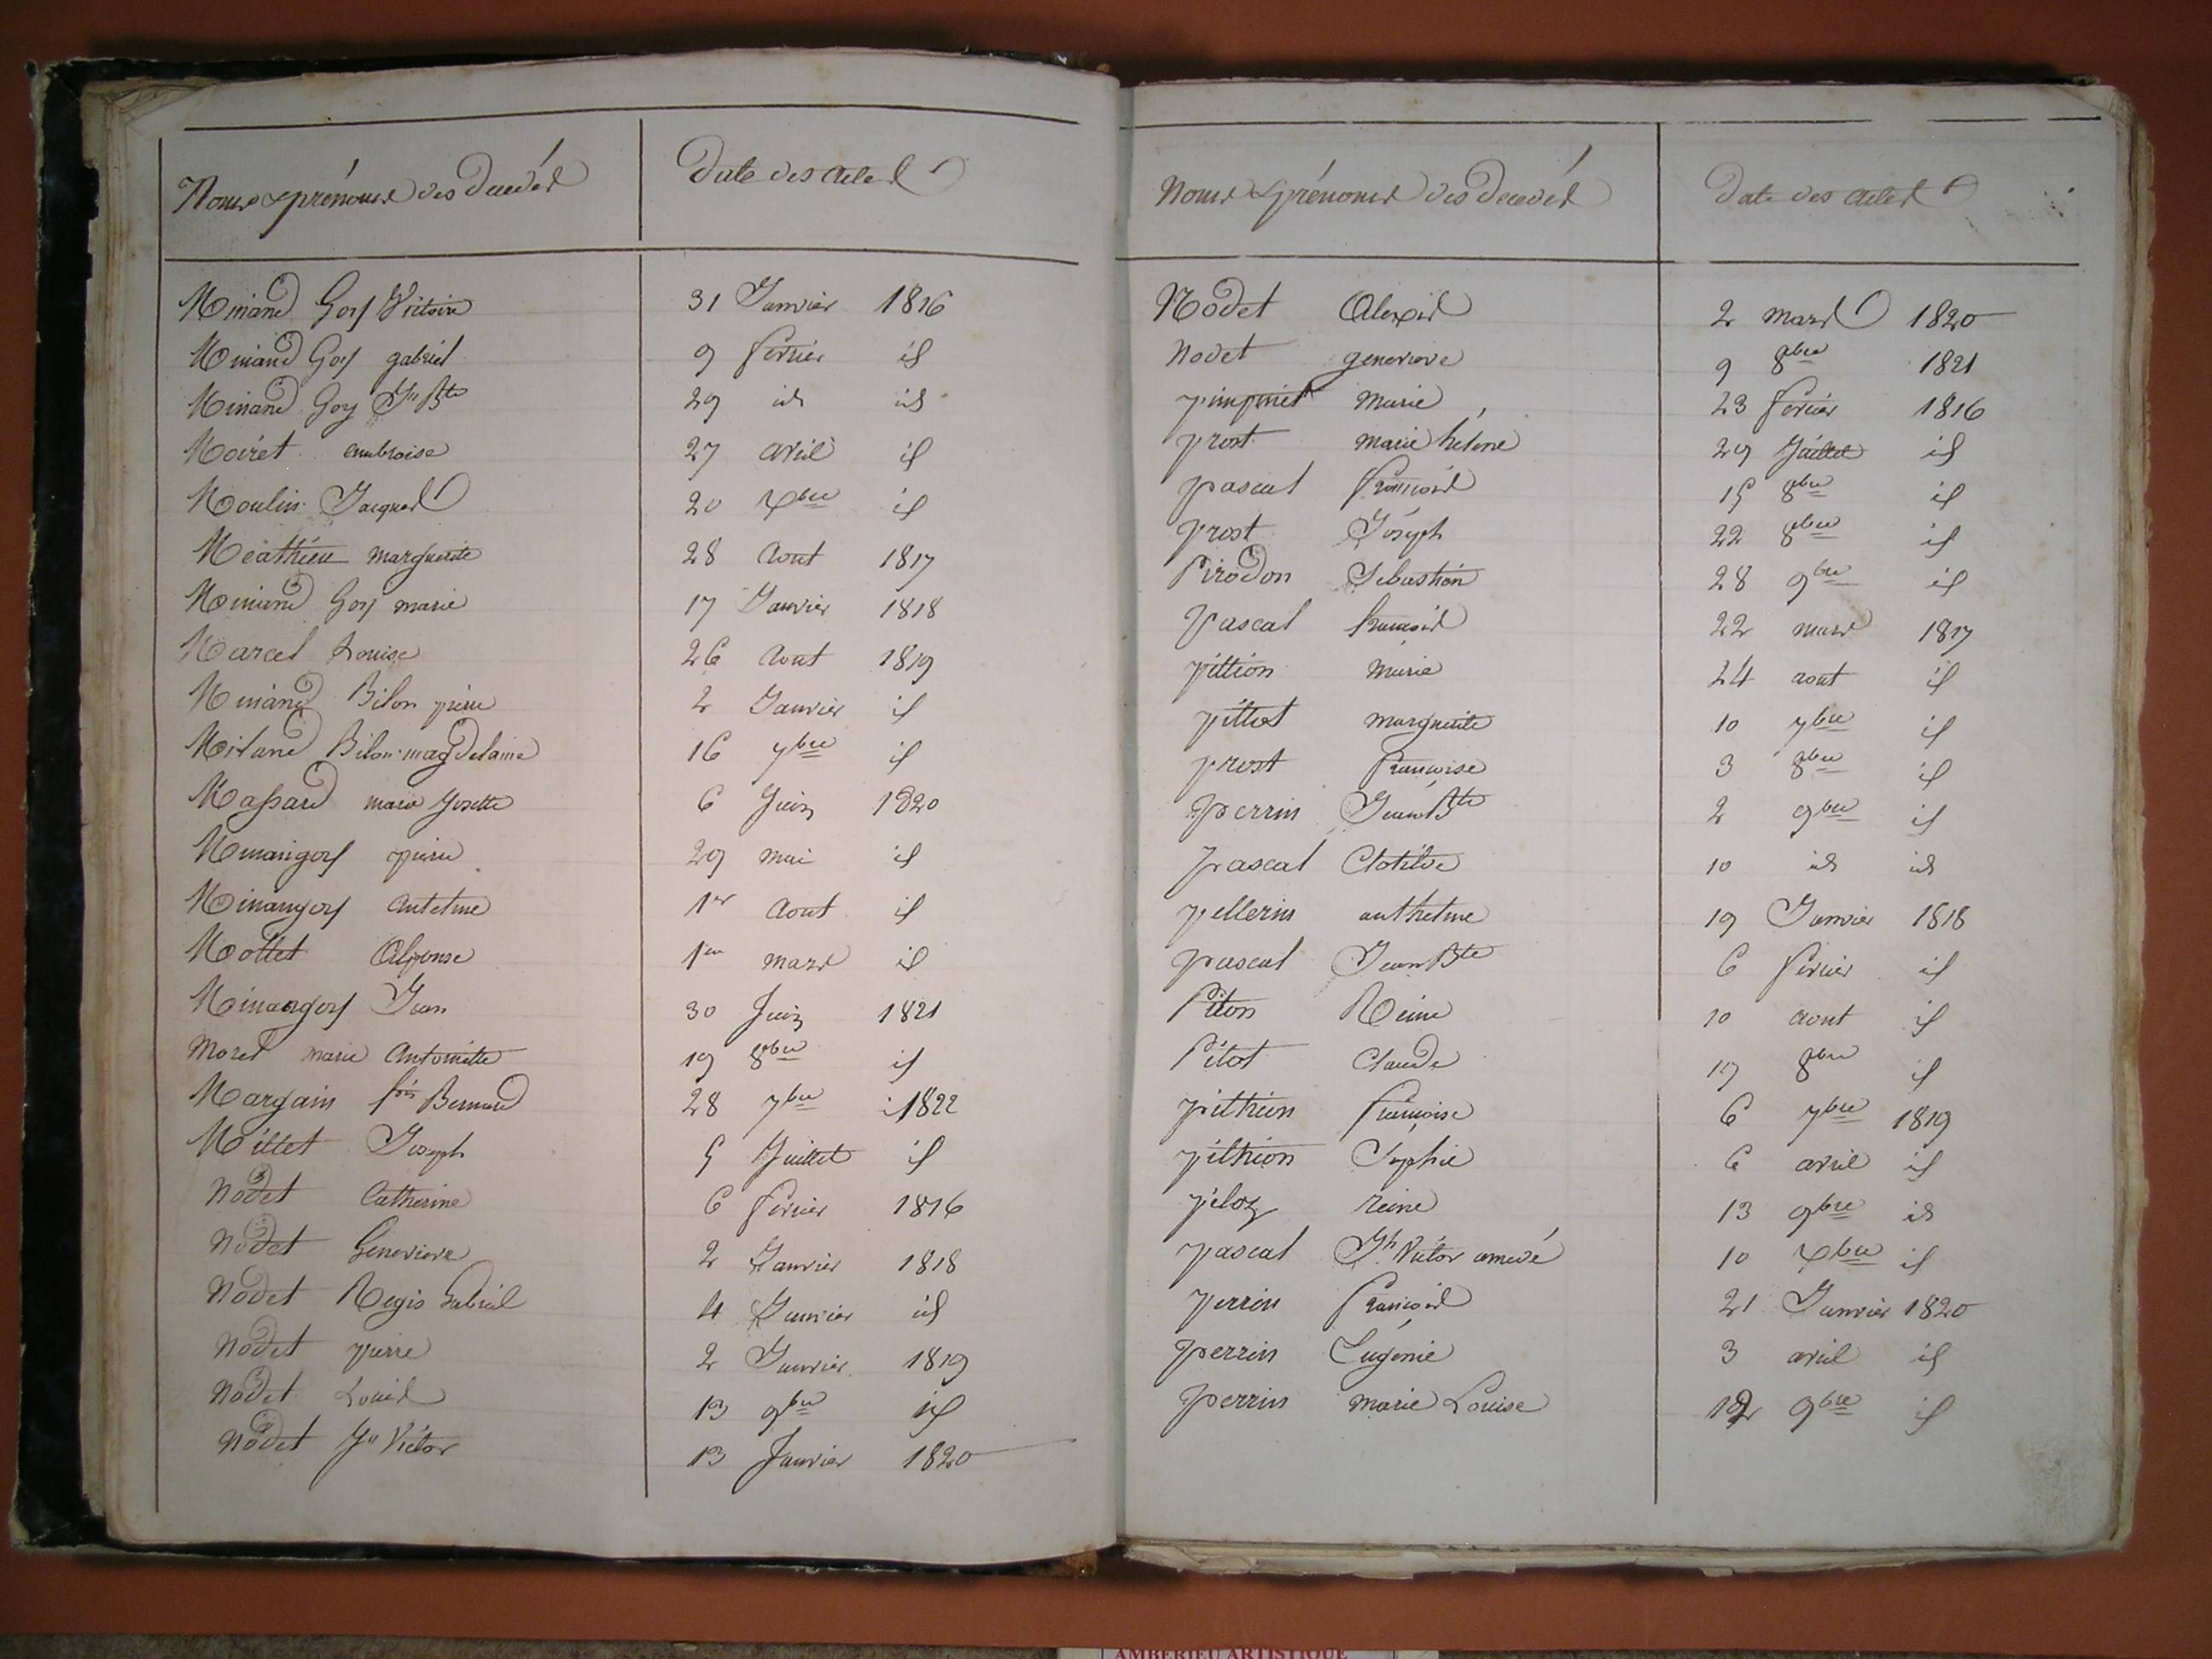 Noms & prénoms des décédés Date des actes
Minand Goy Victoire 31 Janvier 1816
Minand Goy gabriel 9 fevrier id
Minand Goy Jn Bte 29 id id
Moiret ambroise 27 avril id
Moulin Jacques 20 Xbre id
Meathieu marguerite 28 Aout 1817
Minand Goy marie 17 Janvier 1818
Marcel Louise 26 Aout 1819
Minand Bilon pierre 2 Janvier id
Bilon magdelaine 16 7bre id
Massard marie Josette 6 Juin 1820
pierre 29 mai id
Minangoy Antelme 1er Aout id
Mollet Alponse 1er mars id
Minangoy Jean 30 Juin 1821
Morel marie Antoinette 19 8bre id
Margain fois Bernard 28 7bre 1822
Millet Joseph 5 Juillet id
Nodet Catherine 6 fevrier 1816
Nodet Genevieve 2 Janvier 1818
Nodet Regis Gabriel 4 Janvier id
Nodet pierre 2 Janvier 1819
Nodet Louis 13 9bre id
Nodet Jn Victor 13 Janvier 1820
Noms & prénoms des decedés Date des actes
Nodet Alexis 2 mars 1820
Nodet genevieve 9 8bre 1821
marie 23 fevrier 1816
prost marie helene 29 Juillet id
pascal François 15 8bre id
prost Joseph 22 8bre id
Pirodon Sebastien 28 9bre id
Pascal francois 22 mars 1817
pittion marie 24 aout id
pittot marguerite 10 7bre id
prost françoise 3 8bre id
perrin Jean Bte 2 9bre id
pascal Clotilde 10 id id
pellerin anthelme 19 Janvier 1818
pascal Jean Bte 6 fevrier id
Piton Reine 10 aout id
Pitot Claude 17 8bre id
pithion françoise 6 7bre 1819
pithion Sophie 6 avril id
peloz reine 13 9bre id
pascal Jh Victor amedé 10 Xbre id
perrin François 21 Janvier 1820
perrin Eugénie 3 avril id
perrin marie Louise 12 9bre id
AMBERIEU ARTISTIQUE